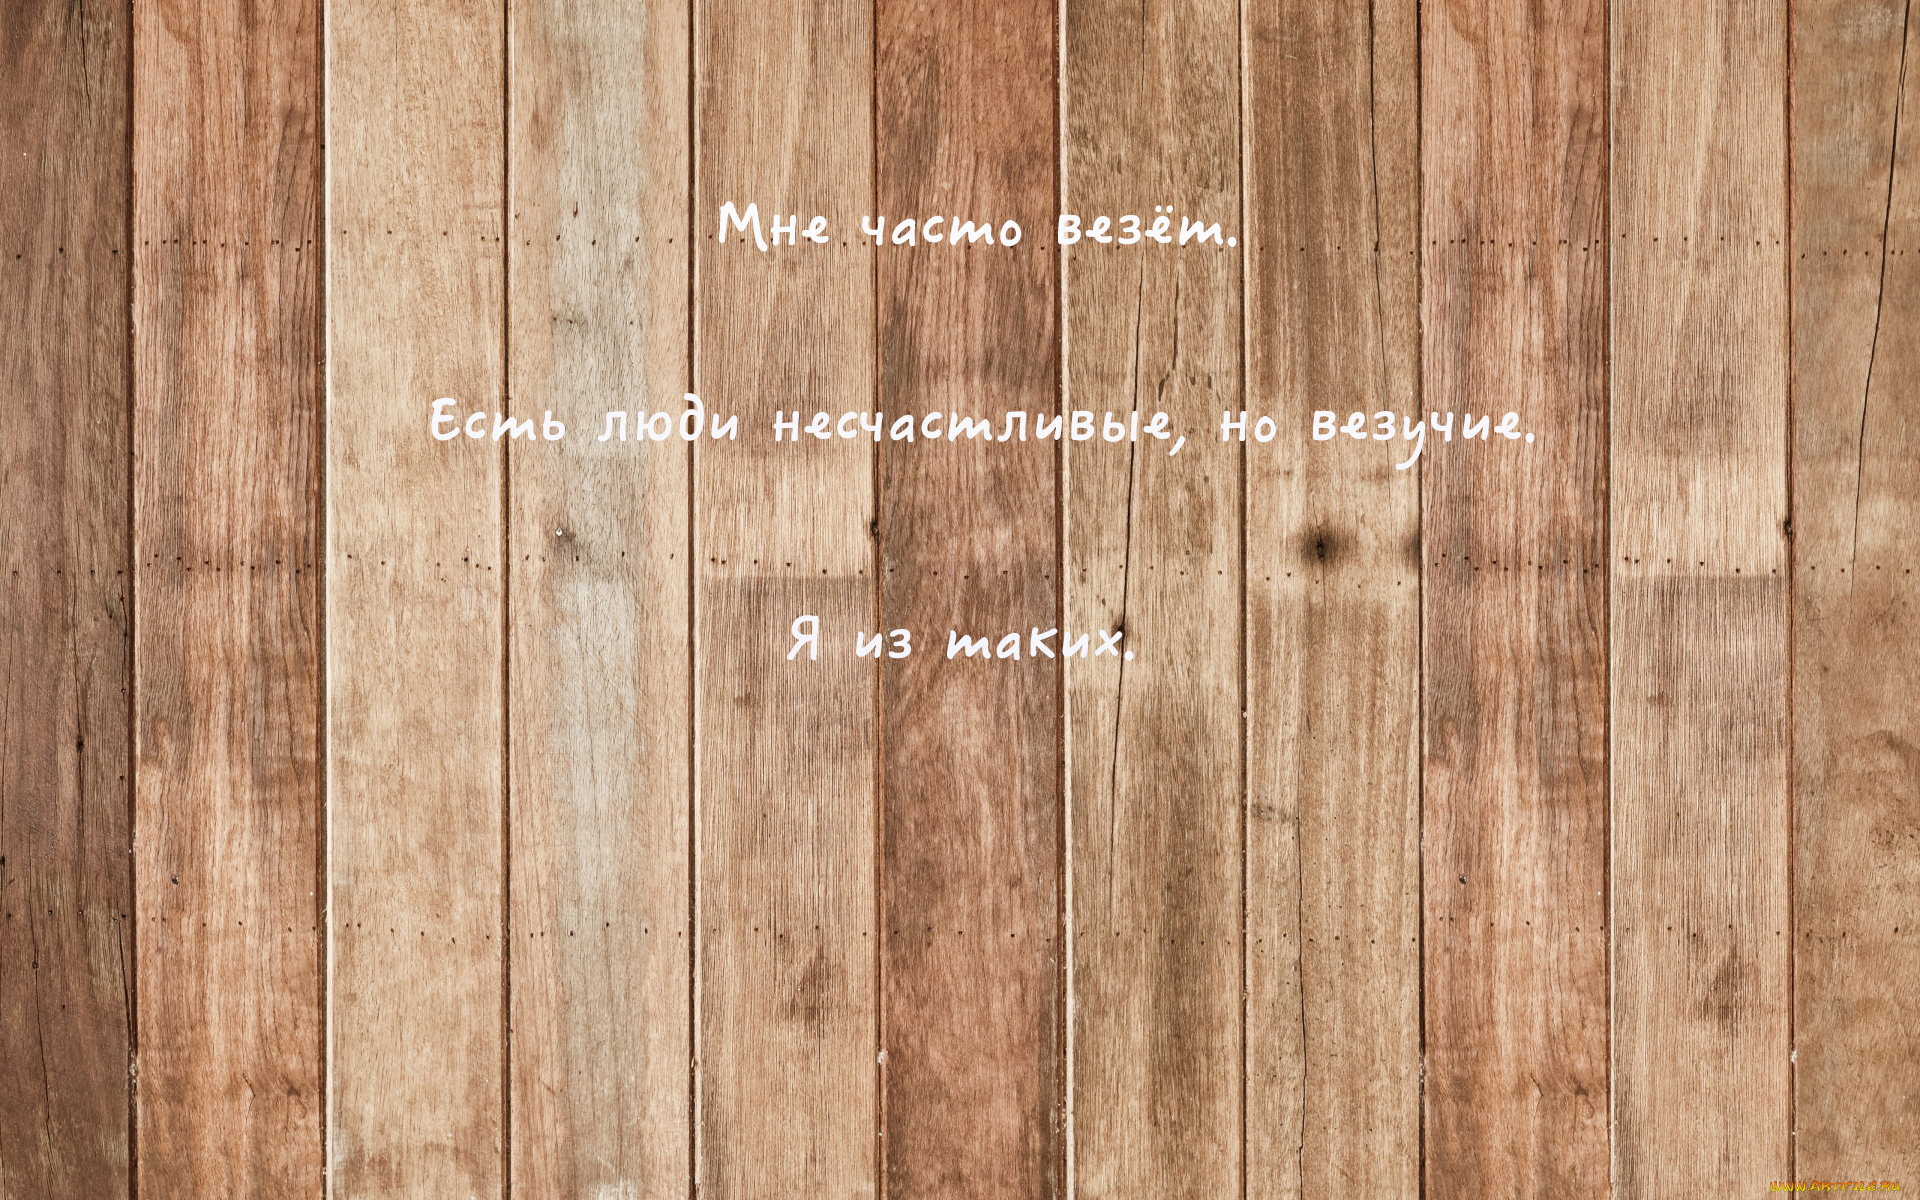 Мне часто везёт.
Есть люди несчастливые, но везучие.
Я из таких.
www.ARTFILE.RU